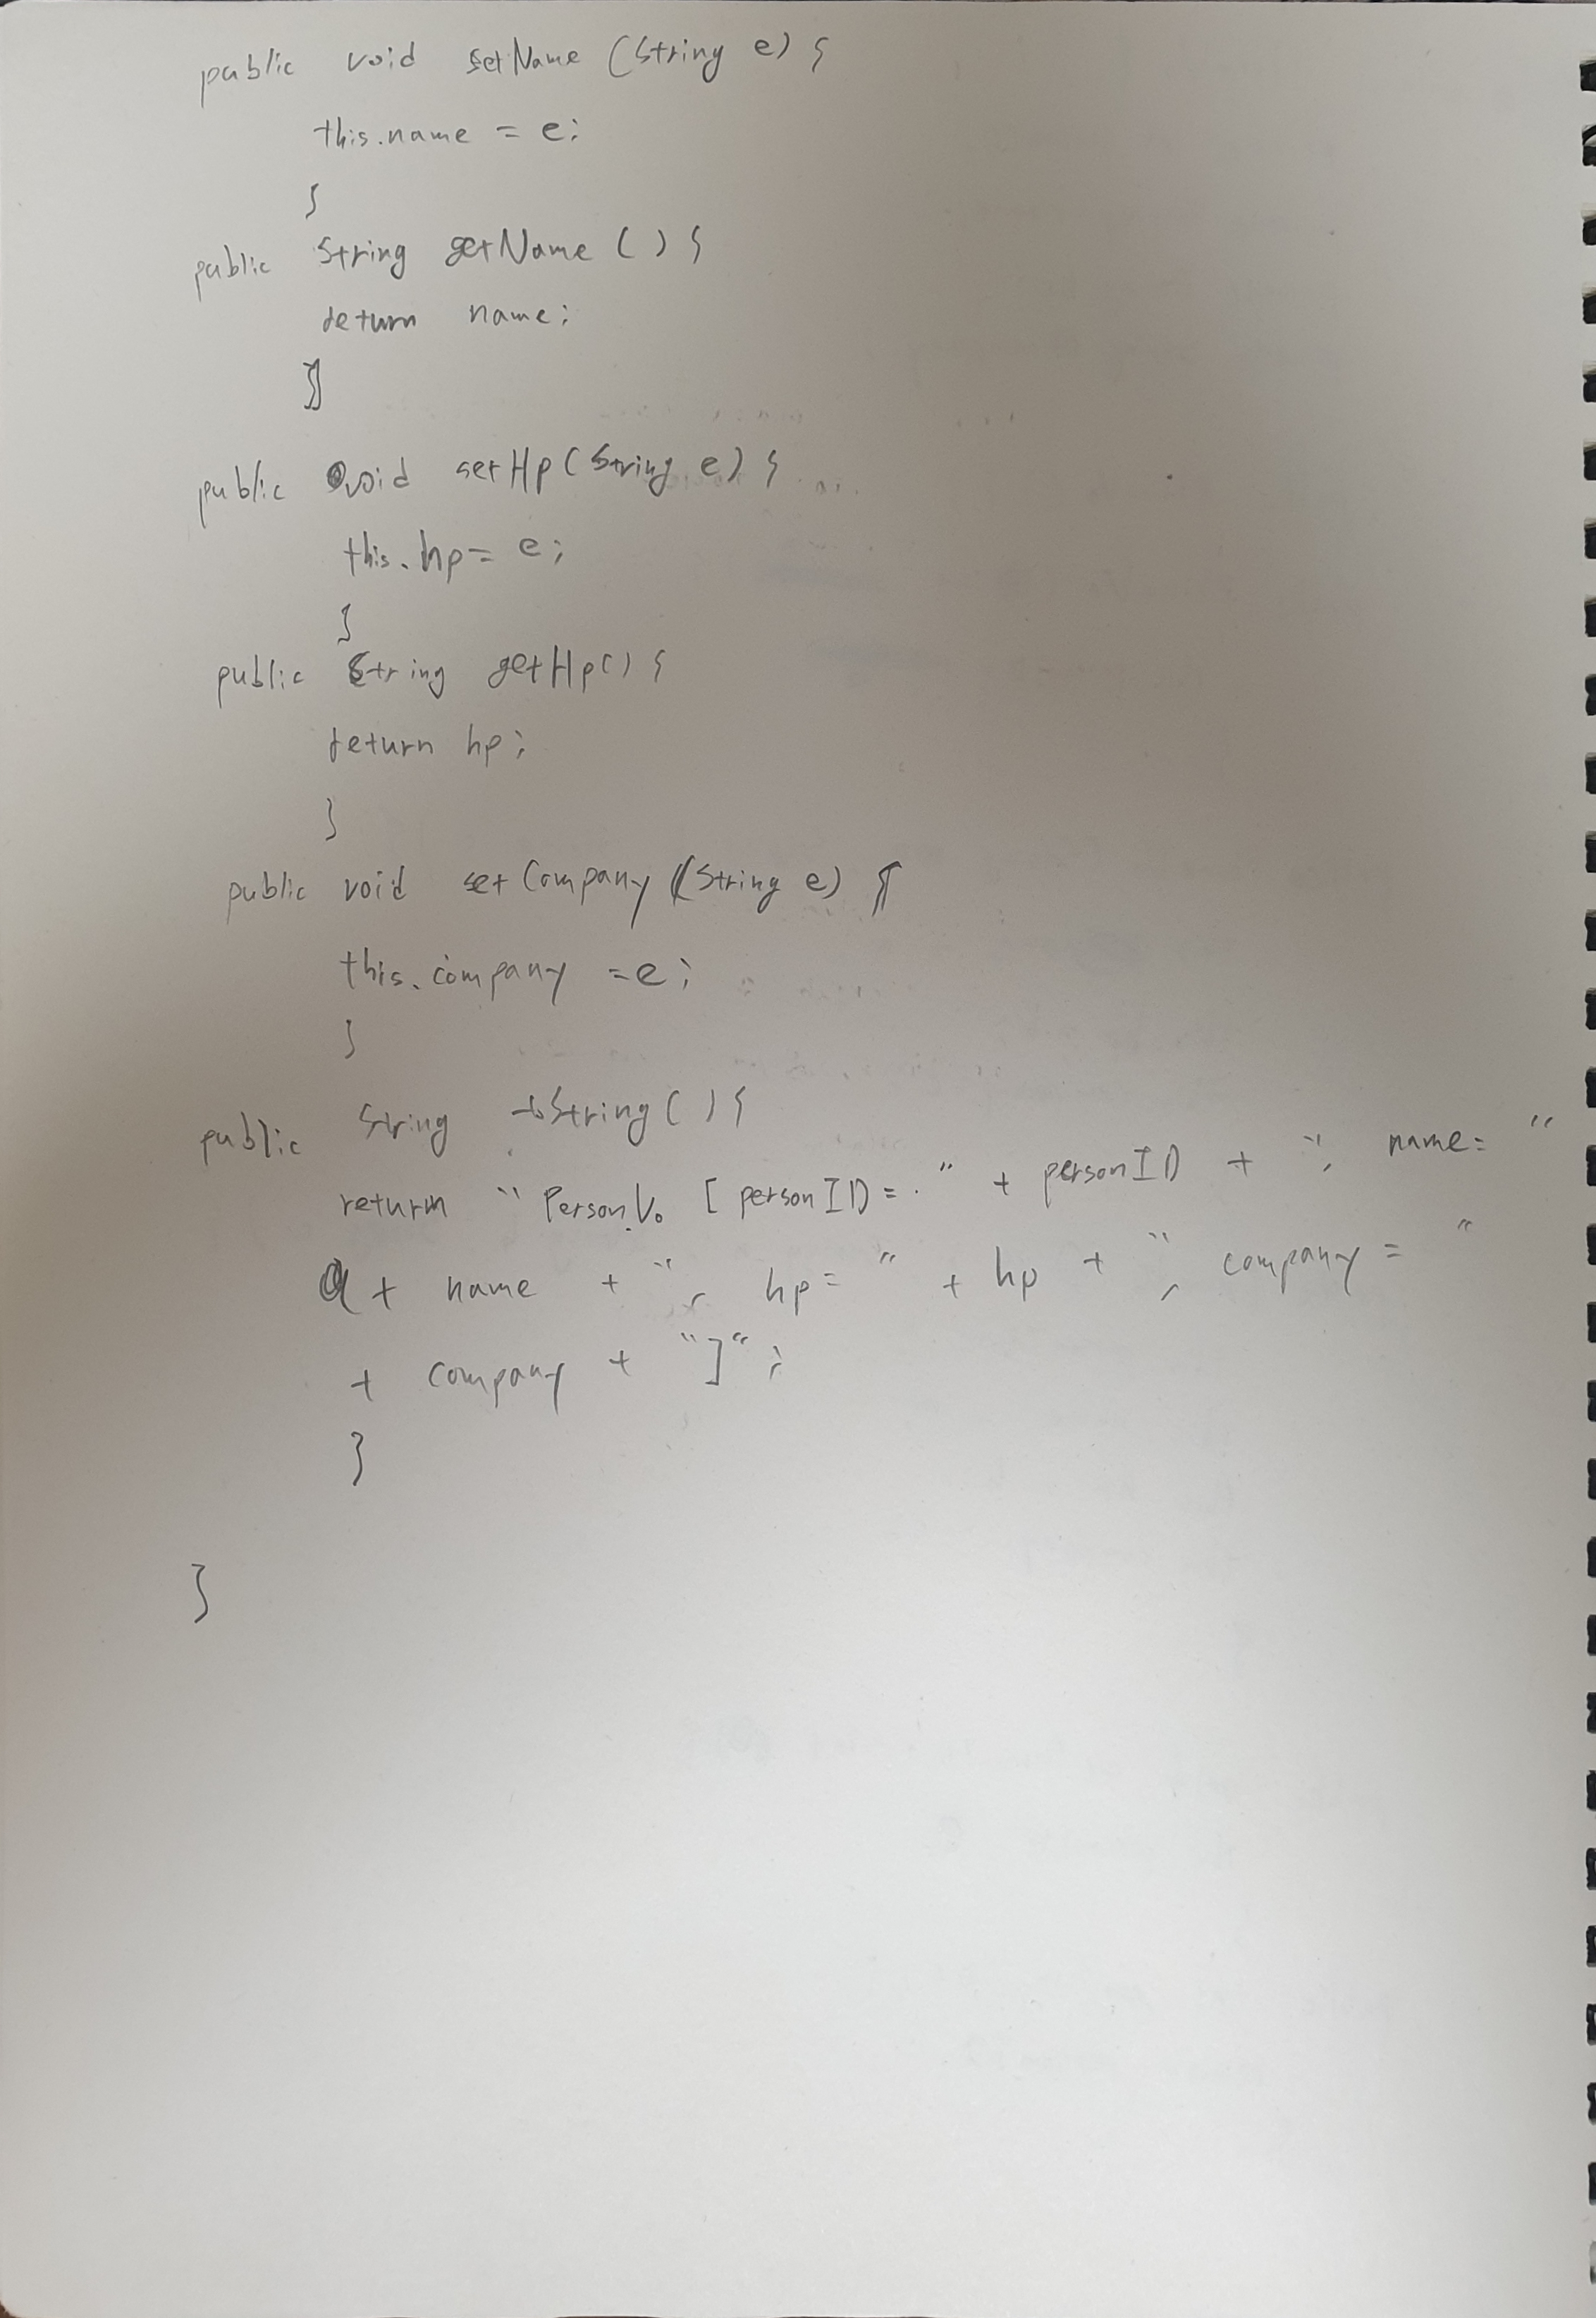 public void setName (String e) {
this.name = e;
}
public String getName () {
return name;
}
public void setHp (String e) {
this.hp = e;
}
public String getHp() {
return hp;
}
public void setCompany (String e) {
this.company = e;
}
public String toString () {
return "PersonVo [personID = " + personID + ", name= "
+ name + ", hp = " + hp + ", company = "
+ company + "]";
}
}